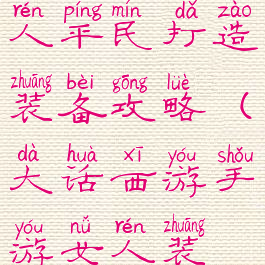 rén píng mín dǎ zào
人平民打造
zhuāng bèi gōng lüè
装备攻略（
dà huà xī yóu shǒu
大话西游手
yóu nǚ rén zhuāng
游女人装